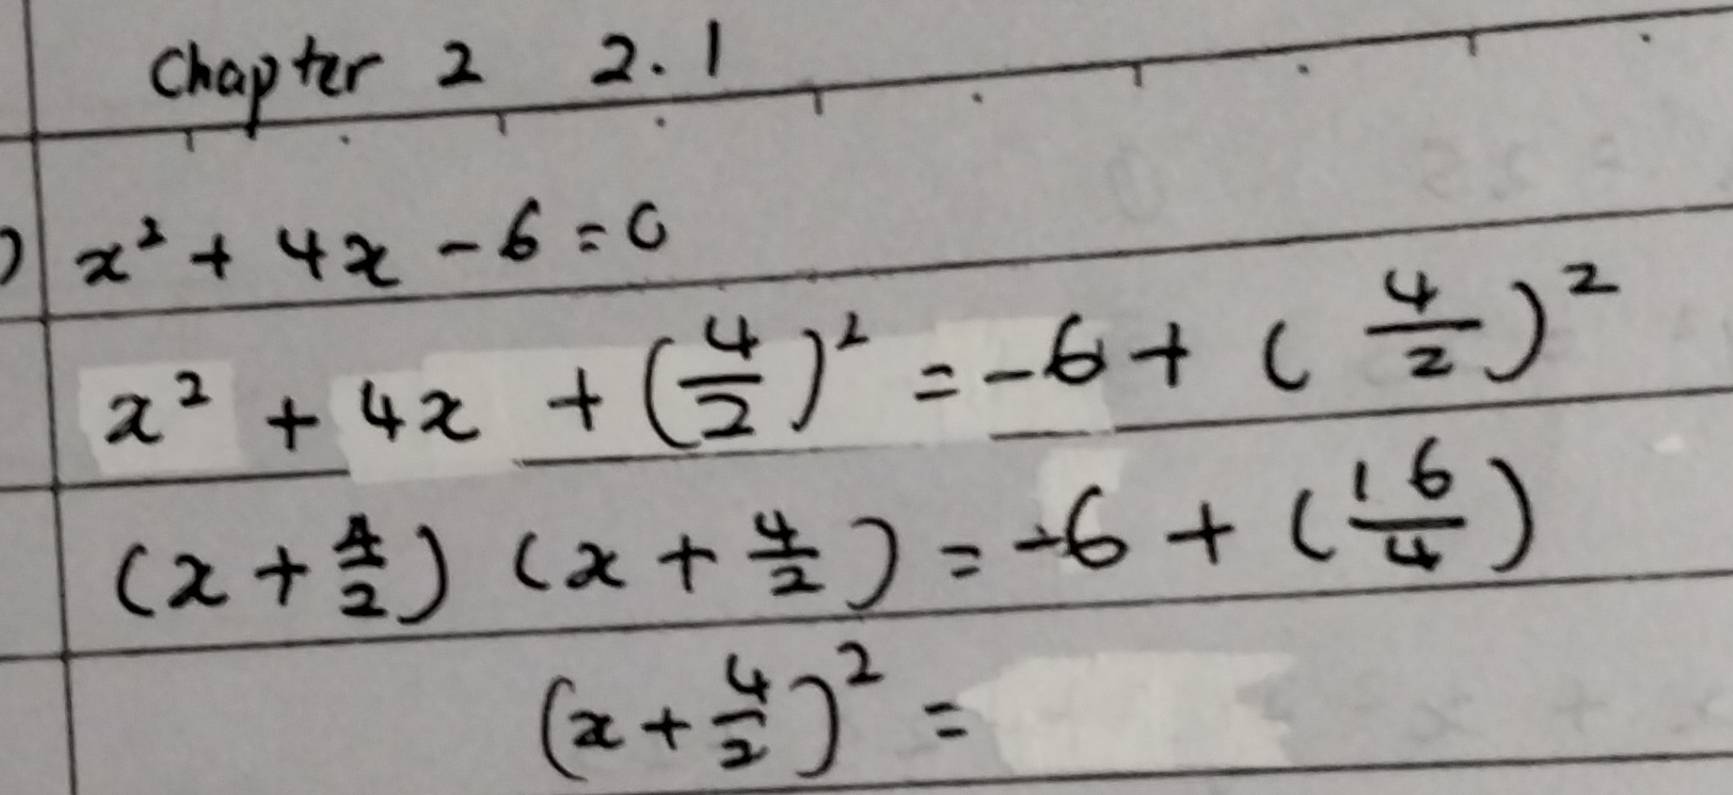 Chapter 2 2.1
) x² + 4x - 6 = 0
x² + 4x + (4/2)² = -6 + (4/2)²
(x + 4/2) (x + 4/2) = -6 + (16/4)
(x + 4/2)² =